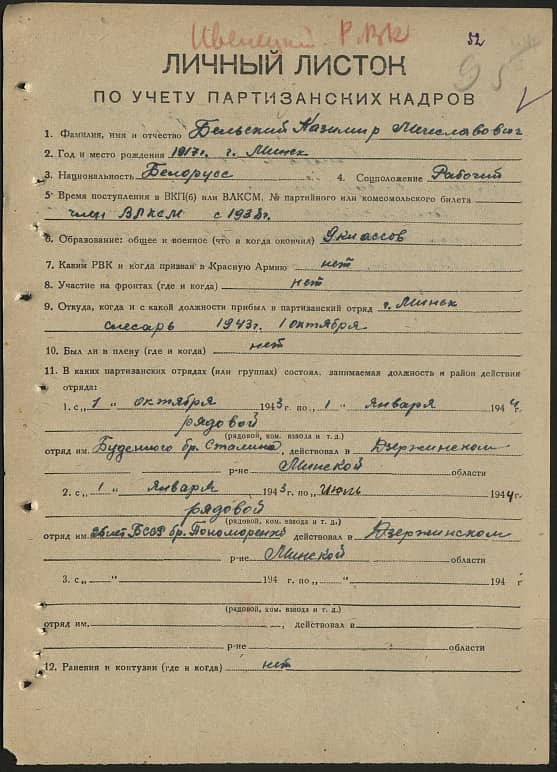 Ивенецкий РВК
52
95
ЛИЧНЫЙ ЛИСТОК
ПО УЧЕТУ ПАРТИЗАНСКИХ КАДРОВ
1. Фамилия, имя и отчество Бельский Казимир Мечиславович
2. Год и место рождения 1917г. г. Минск
3. Национальность Белорусс 4. Соцположение Рабочий
5. Время поступления в ВКП(б) или ВЛКСМ, № партийного или комсомольского билета
член ВЛКСМ с 1938г.
6. Образование: общее и военное (что и когда окончил) 9 классов
7. Каким РВК и когда призван в Красную Армию нет
8. Участие на фронтах (где и когда) нет
9. Откуда, когда и с какой должности прибыл в партизанский отряд г. Минск
слесарь 1943г. 1 октября
10. Был ли в плену (где и когда) нет
11. В каких партизанских отрядах (или группах) состоял, занимаемая должность и район действия
отряда:
1. с „1“ октября 1943 г. по „1“ января 1944 г.
рядовой
(рядовой, ком. взвода и т. д.)
отряд им. Буденного бр. Сталина, действовал в Дзержинском
р-не Минской области
2. с „1“ января 1943 г. по „июль 1944 г.
рядовой
(рядовой, ком. взвода и т. д.)
отряд им. 25 лет БССР бр. Пономоренко действовал в Дзержинском
р-не Минской области
3. с „ “ 194 г. по „ “ 194 г
(рядовой, ком. взвода и т. д.)
отряд им. , действовал в
р-не области
12. Ранения и контузии (где и когда) нет